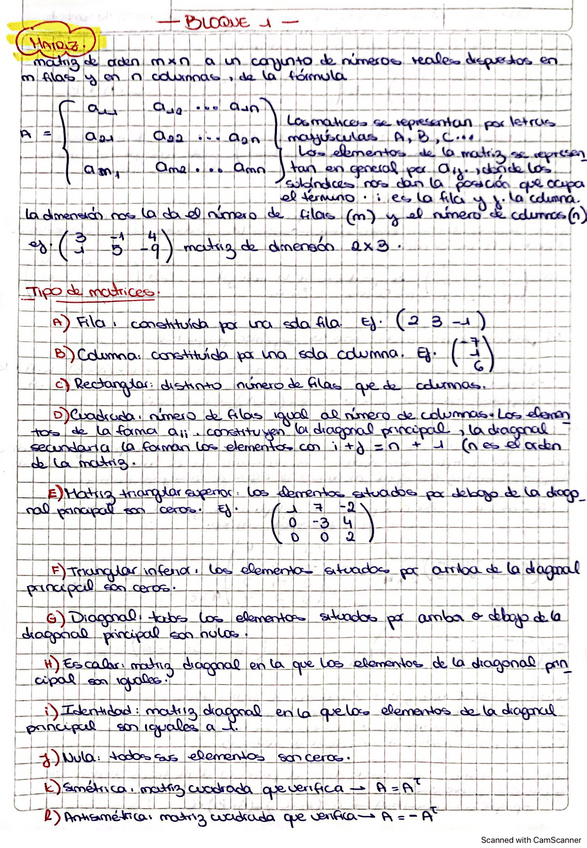 — BLOQUE 1 —
MATRIZ:
matriz de orden m×n a un conjunto de números reales dispuestos en
m filas y en n columnas, de la fórmula
A = ( a11 a12 ... a1n
a21 a22 ... a2n
am1 am2 ... amn )
Las matrices se representan por letras
mayúsculas A, B, C...
Los elementos de la matriz se represen
tan en general por aij, donde los
subíndices nos dan la posición que ocupa
el término. i es la fila y j la columna.
La dimensión nos la da el número de filas (m) y el número de columnas (n)
ej. ( 3 -1 4
1 5 -9 ) matriz de dimensión 2×3.
Tipo de matrices:
A) Fila: constituida por una sola fila. Ej. (2 3 -1)
B) Columna: constituida por una sola columna. Ej. ( -7
1
6 )
C) Rectangular: distinto número de filas que de columnas.
D) Cuadrada: número de filas igual al número de columnas. Los elemen
tos de la forma aii constituyen la diagonal principal, la diagonal
secundaria la forman los elementos con i+j = n + 1 (n es el orden
de la matriz.
E) Matriz triangular superior: los elementos situados por debajo de la diago_
nal principal son ceros. Ej. ( 1 7 -2
0 -3 4
0 0 2 )
F) Triangular inferior: los elementos situados por arriba de la diagonal
principal son ceros.
G) Diagonal: todos los elementos situados por arriba o debajo de la
diagonal principal son nulos.
H) Escalar: matriz diagonal en la que los elementos de la diagonal prin_
cipal son iguales.
i) Identidad: matriz diagonal en la que los elementos de la diagonal
principal son iguales a 1.
j) Nula: todos sus elementos son ceros.
k) Simétrica: matriz cuadrada que verifica → A = Aᵗ
l) Antisimétrica: matriz cuadrada que verifica → A = - Aᵗ
Scanned with CamScanner